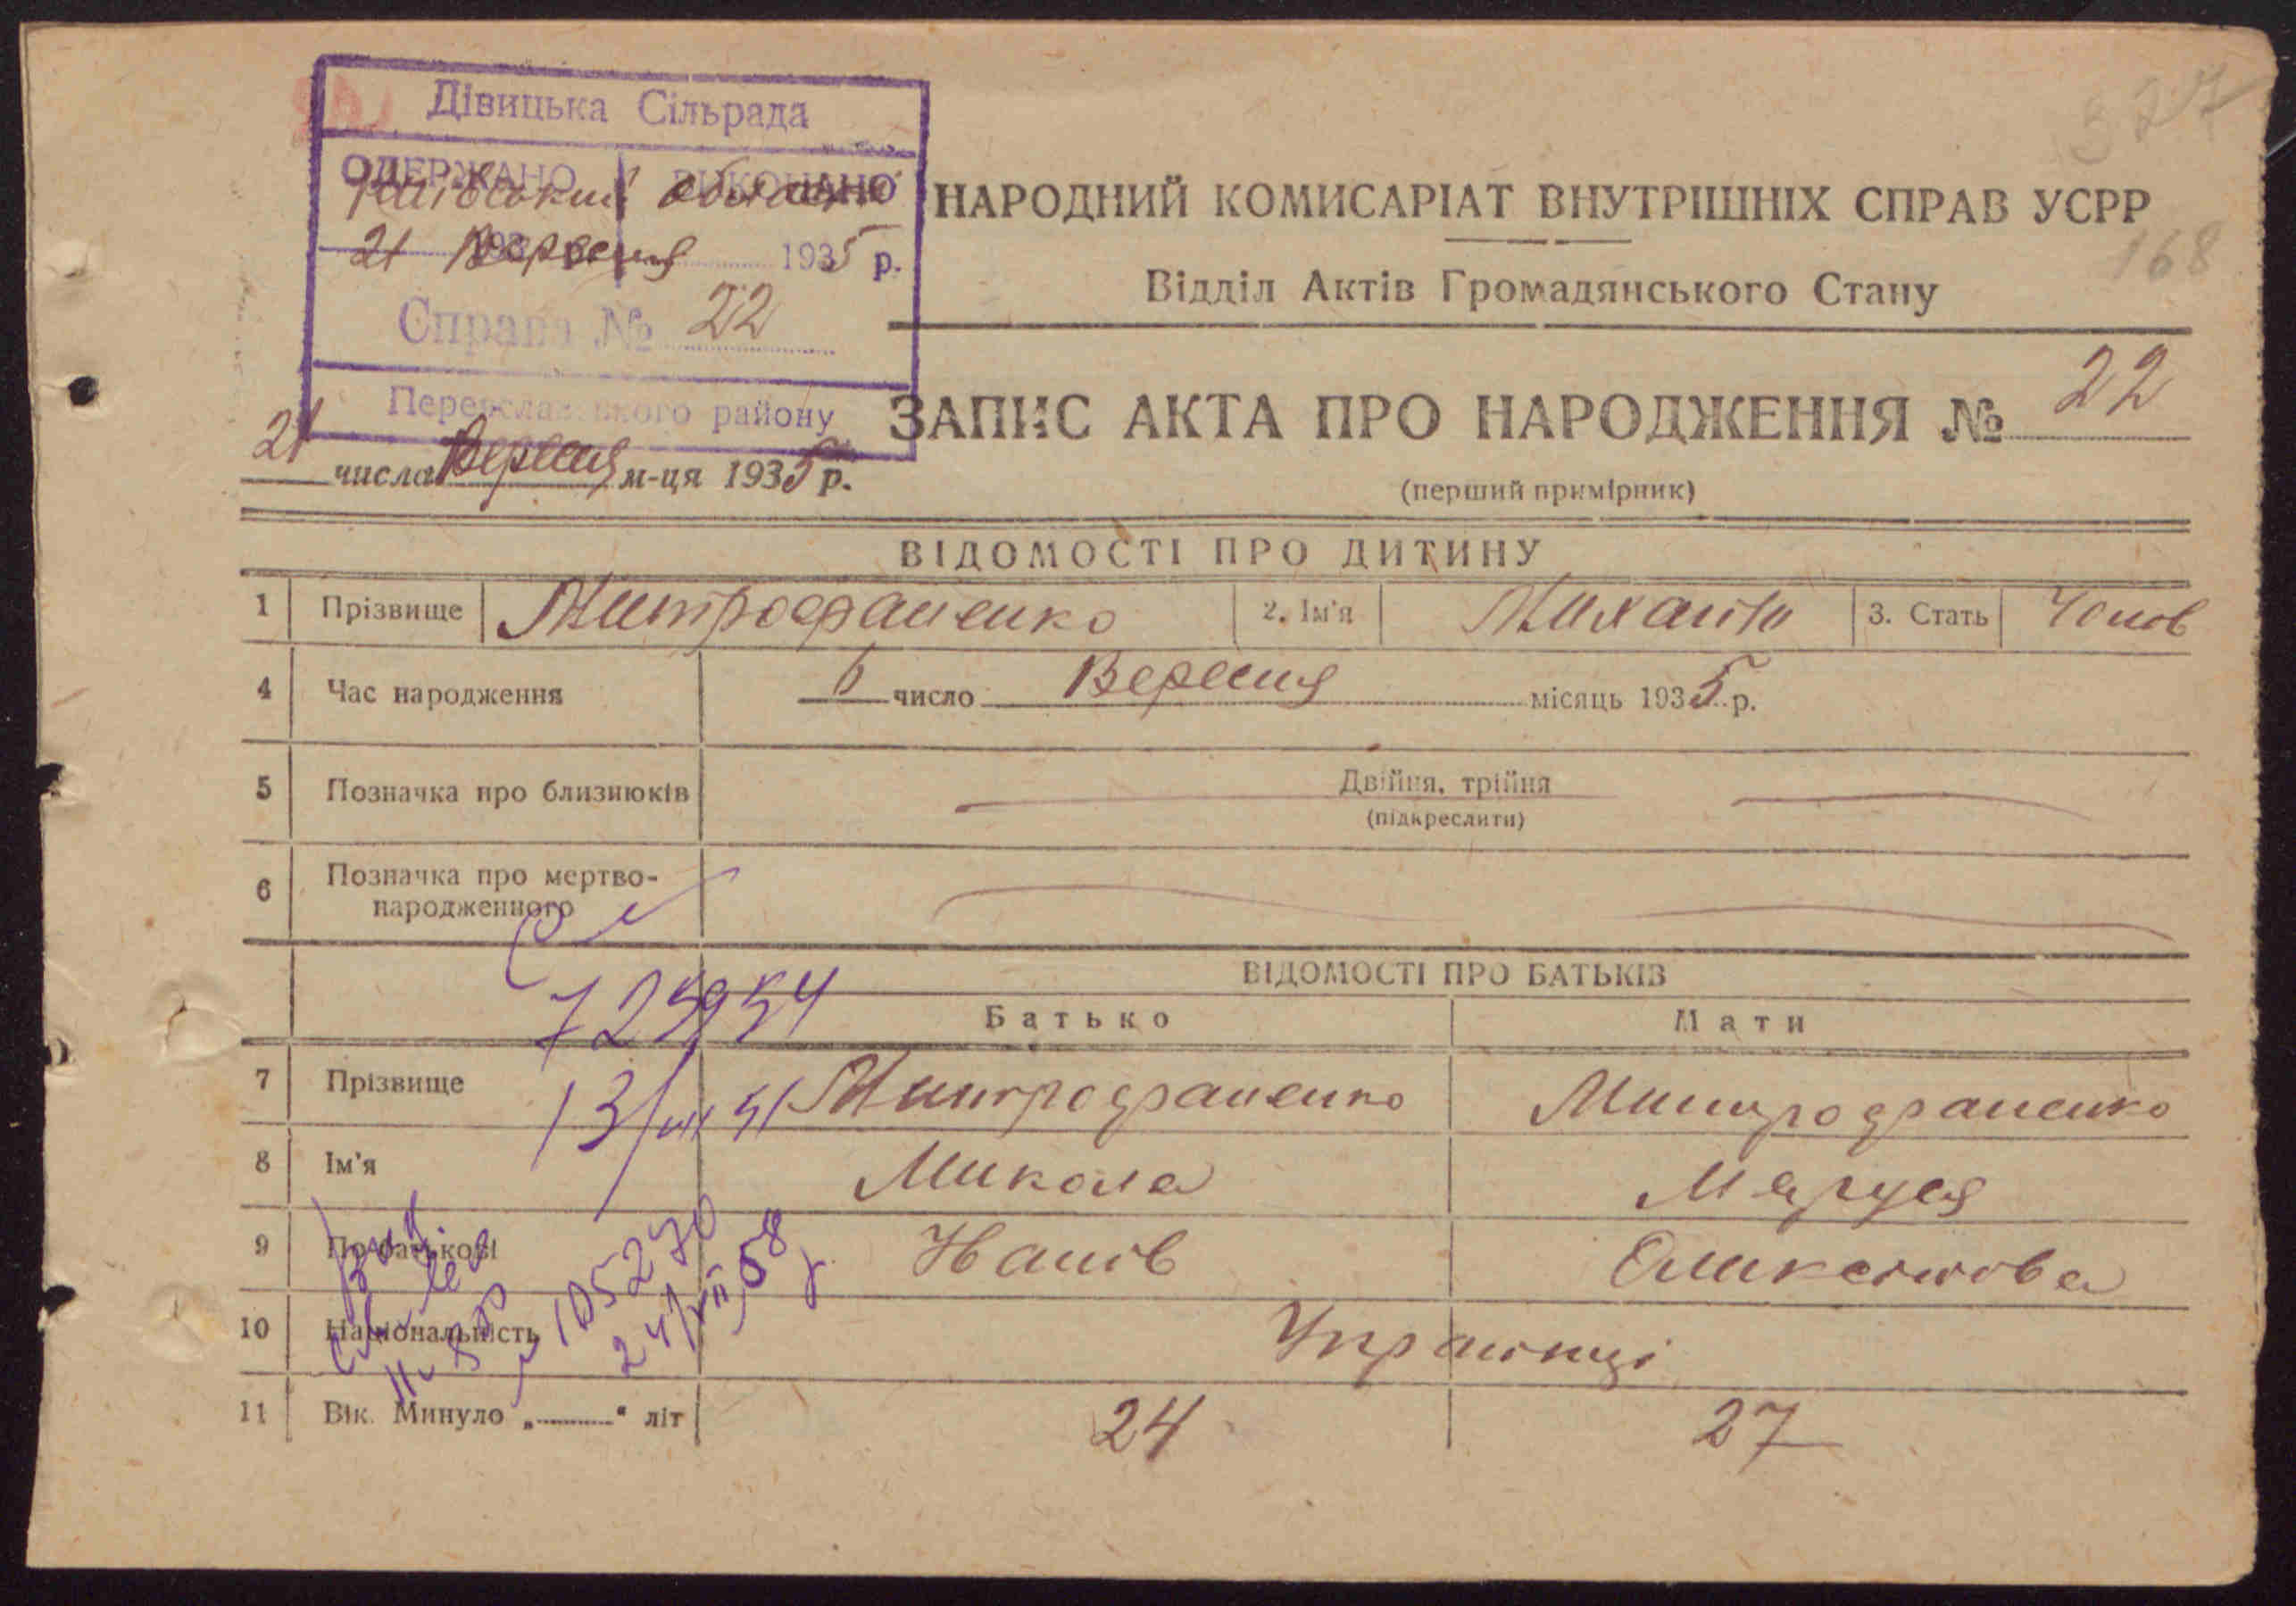 Дівицька Сільрада
ОДЕРЖАНО ВИКОНАНО
Київської області
21 Вересня 1935 р.
Справа № 22
Переяславського району
327
168
НАРОДНИЙ КОМИСАРІАТ ВНУТРІШНІХ СПРАВ УСРР
Відділ Актів Громадянського Стану
ЗАПИС АКТА ПРО НАРОДЖЕННЯ № 22
21 числа Вересня м-ця 1935 р.
(перший примірник)
ВІДОМОСТІ ПРО ДИТИНУ
1 Прізвище Митрофаненко 2. Ім'я Михайло 3. Стать Чолов
4 Час народження 6 число Вересня місяць 1935 р.
5 Позначка про близнюків Двійня, трійня
(підкреслити)
6 Позначка про мертво-
народженного
ВІДОМОСТІ ПРО БАТЬКІВ
Батько Мати
7 Прізвище Митрофаненко Митрофаненко
8 Ім'я Микола Маруся
9 По батькові
10 Національність Українці
11 Вік. Минуло „ “ літ 24 27
105270